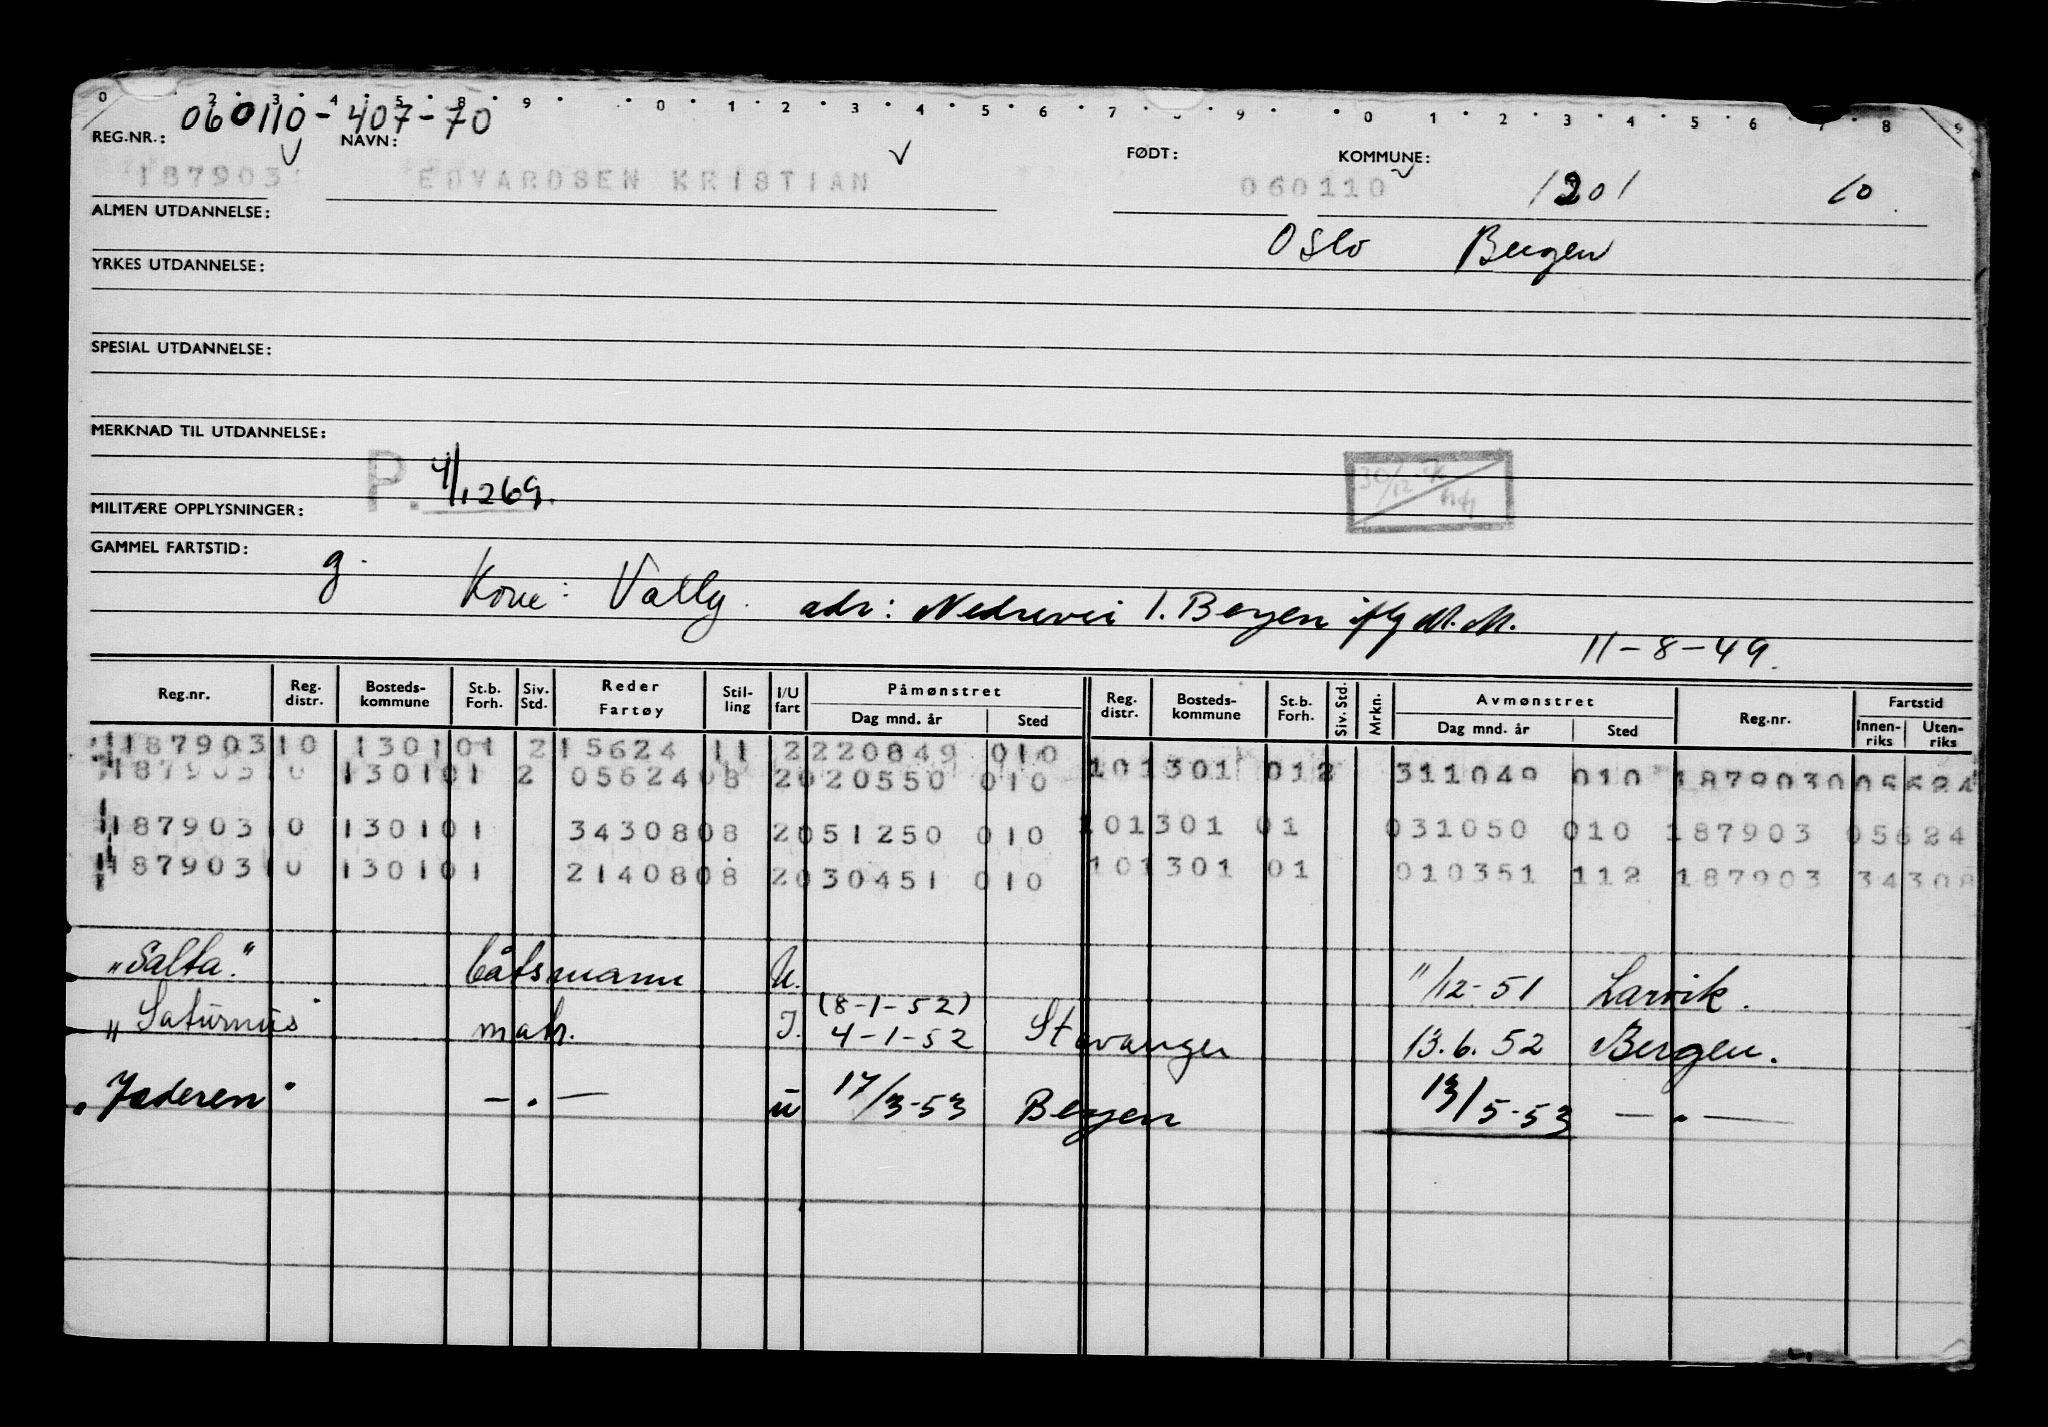 0 2 3 4 5 8 9 0 1 2 3 4 5 6 7 9 0 1 2 3 4 5 6 7 8 9
060110-407-70
REG.NR.: NAVN: FØDT: KOMMUNE:
187903 EDVARDSEN KRISTIAN 060110 1201 10
ALMEN UTDANNELSE: Oslo Bergen
YRKES UTDANNELSE:
SPESIAL UTDANNELSE:
MERKNAD TIL UTDANNELSE:
P. 4/1269.
MILITÆRE OPPLYSNINGER:
GAMMEL FARTSTID: g.
Kone: Vally. adr: Nedrevei 1. Bergen iflg M.M.
11-8-49.
Reg.nr. Reg. distr. Bosteds-kommune St.b. Forh. Siv. Std. Reder Fartøy Stil-ling I/U fart Påmønstret Dag mnd. år Sted Reg. distr. Bosteds-kommune St.b. Forh. Siv. Std. Mrkn. Avmønstret Dag mnd. år Sted Reg.nr. Fartstid Innen-riks Uten-riks
187903 10 1301 01 2 15624 11 2 220849 010 10 1301 01 2 311049 010 187903 005624
187903 10 1301 01 2 05624 08 2 020550 010 10 1301 01 031050 010 187903 05624
187903 10 1301 01 34308 08 2 051250 010 10 1301 01 010351 112 187903 34308
187903 10 1301 01 21408 08 2 030451 010
"Salta." båtsmann U. 11/12-51 Larvik.
"Saturnus" matr. I. (8-1-52) 4-1-52 Stavanger 13.6.52 Bergen.
"Jæderen" —.— u 17/3-53 Bergen 13/5-53 —.—